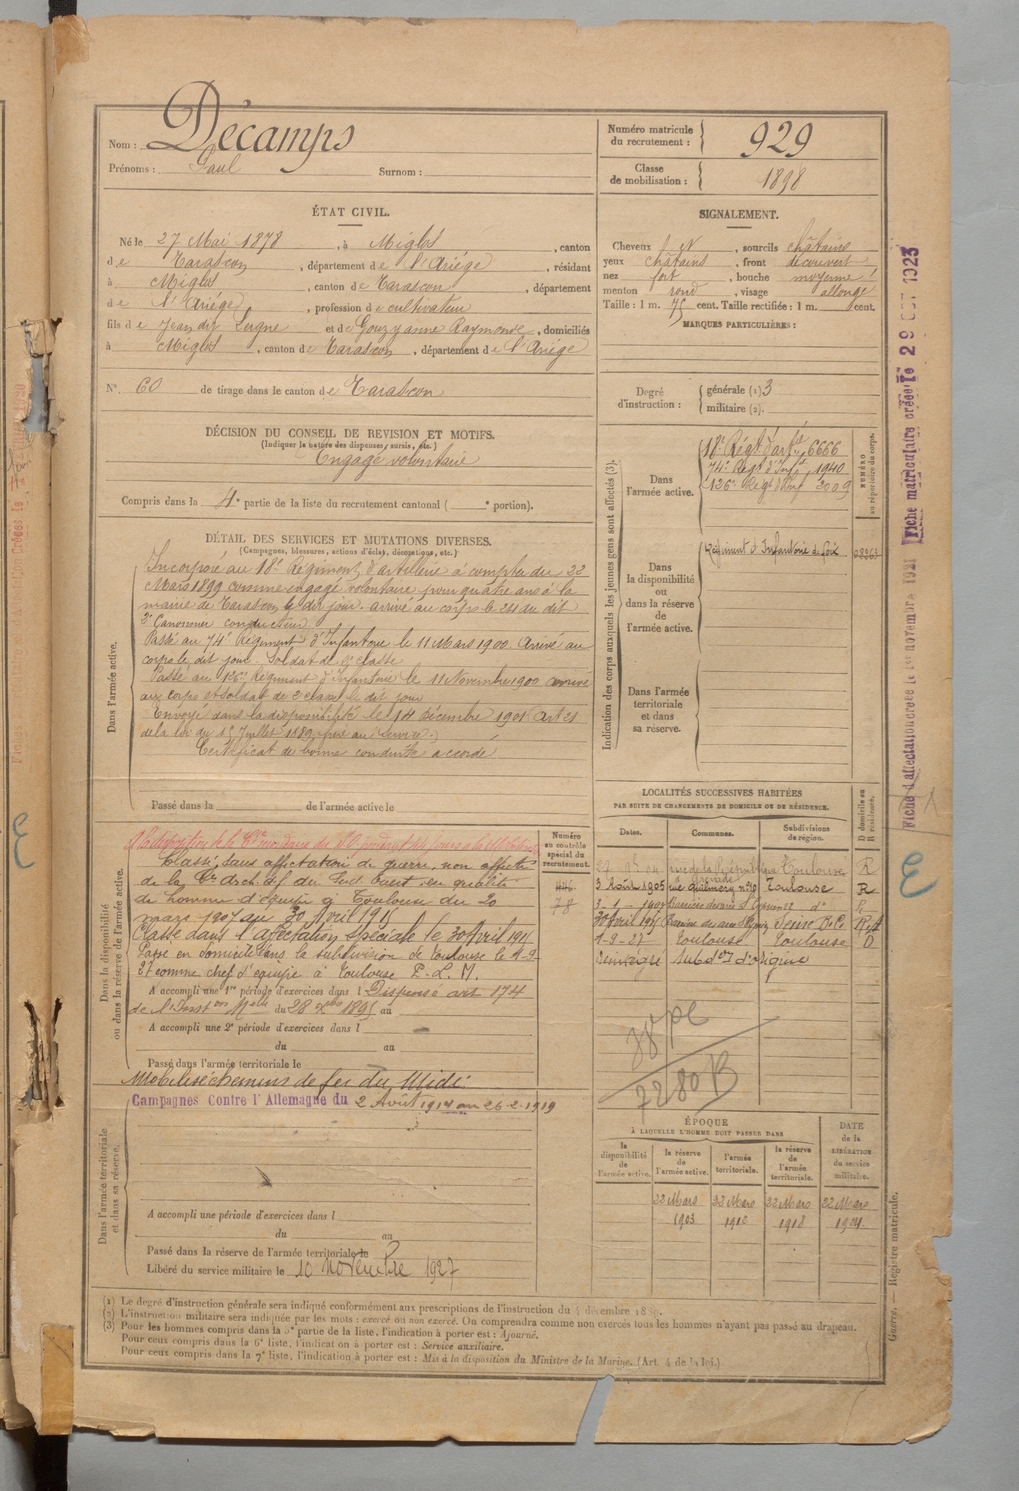 Nom : Décamps
Prénoms : Paul Surnom :
Numéro matricule du recrutement : 929
Classe de mobilisation : 1898
ÉTAT CIVIL.
Né le 27 Mai 1878, à Miglos, canton
de Tarascon, département de l'Ariége, résidant
à Miglos, canton de Tarascon, département
de l'Ariége, profession de cultivateur
fils de Jean dit Lugne et de Gouzy anne Raymonde, domiciliés
à Miglos, canton de Tarascon, département de l'Ariége
N° 60 de tirage dans le canton de Tarascon
SIGNALEMENT.
Cheveux, sourcils châtains
yeux châtains, front découvert
nez fort, bouche moyenne
menton rond, visage allongé
Taille : 1 m. 75 cent. Taille rectifiée : 1 m. cent.
MARQUES PARTICULIÈRES :
Degré d'instruction : générale (1) 3
militaire (2).
DÉCISION DU CONSEIL DE REVISION ET MOTIFS.
(Indiquer la nature des dispenses, sursis, etc.)
Engagé volontaire
Compris dans la 4e partie de la liste du recrutement cantonal ( e portion).
DÉTAIL DES SERVICES ET MUTATIONS DIVERSES.
(Campagnes, blessures, actions d'éclat, décorations, etc.)
Dans l'armée active.
Incorporé au 18e Régiment d'artillerie à compter du 22
Mars 1899 comme engagé volontaire pour quatre ans à la
mairie de Tarascon le dit jour. arrivé au corps le 24 du dit
2e Canonnier conducteur.
Passé au 74e Régiment d'Infanterie le 11 Mars 1900. Arrivé au
corps le dit jour, Soldat de 2e classe
Passé au 126e Régiment d'Infanterie le 11 Novembre 1900 arrivé
au corps et soldat de 2e classe le dit jour
Envoyé dans la disponibilité le 14 décembre 1901 (art 21
de la loi du 15 Juillet 1889,
Certificat de bonne conduite accordé
Passé dans la de l'armée active le
Indication des corps auxquels les jeunes gens sont affectés (3).
NUMÉRO au répertoire du corps.
Dans l'armée active.
18e Régt d'artie 6666
74e Régt d'Infie 1940
126e Régt d'Inf 3009
Dans la disponibilité ou dans la réserve de l'armée active.
Régiment d'Infanterie de Foix
Dans l'armée territoriale et dans sa réserve.
LOCALITÉS SUCCESSIVES HABITÉES
PAR SUITE DE CHANGEMENTS DE DOMICILE OU DE RÉSIDENCE.
Dates. Communes. Subdivisions de région. D domicile ou R résidence.
Toulouse R
3 Août 1905 Toulouse R
1-9-27 Toulouse Toulouse D
Subdon d'origine
Dans la disponibilité ou dans la réserve de l'armée active.
Numéro au contrôle spécial du recrutement.
78
Classé sans affectation de guerre, non affecté
d'homme d'équipe à Toulouse du 20
mars 1907 au 30 Avril 1915
Classé dans l'affectation spéciale le 30 Avril 1915
Passé en domicile dans la subdivision de Toulouse le 1-9-
27 comme chef d'équipe à Toulouse P.-L. M.
A accompli une 1re période d'exercices dans l Dispensé art 174
de l'Inston Mелle du 28 Xbre 1895 au
A accompli une 2e période d'exercices dans l
du au
Passé dans l'armée territoriale le
Mobilisé chemins de fer du Midi
Dans l'armée territoriale et dans sa réserve.
Campagnes Contre l'Allemagne du 2 Août 1914 au 26-2-1919
A accompli une période d'exercices dans l
du au
Passé dans la réserve de l'armée territoriale le
Libéré du service militaire le 10 novembre 1927
7280 B
ÉPOQUE
À LAQUELLE L'HOMME DOIT PASSER DANS
la disponibilité de l'armée active. la réserve de l'armée active. l'armée territoriale. la réserve de l'armée territoriale. DATE de la LIBÉRATION du service militaire.
22 Mars 22 Mars 22 Mars 22 Mars
1903 1912 1918 1924
(1) Le degré d'instruction générale sera indiqué conformément aux prescriptions de l'instruction du 4 décembre 1889.
(2) L'instruction militaire sera indiquée par les mots : exercé ou non exercé. On comprendra comme non exercés tous les hommes n'ayant pas passé au drapeau.
(3) Pour les hommes compris dans la 5e partie de la liste, l'indication à porter est : Ajourné.
Pour ceux compris dans la 6e liste, l'indication à porter est : Service auxiliaire.
Pour ceux compris dans la 7e liste, l'indication à porter est : Mis à la disposition du Ministre de la Marine. (Art. 4 de la loi.)
Fiche matriculaire créée le 29 OCT 1923
Fiche d'affectation créée le 1er novembre 192
Guerre. — Registre matricule.